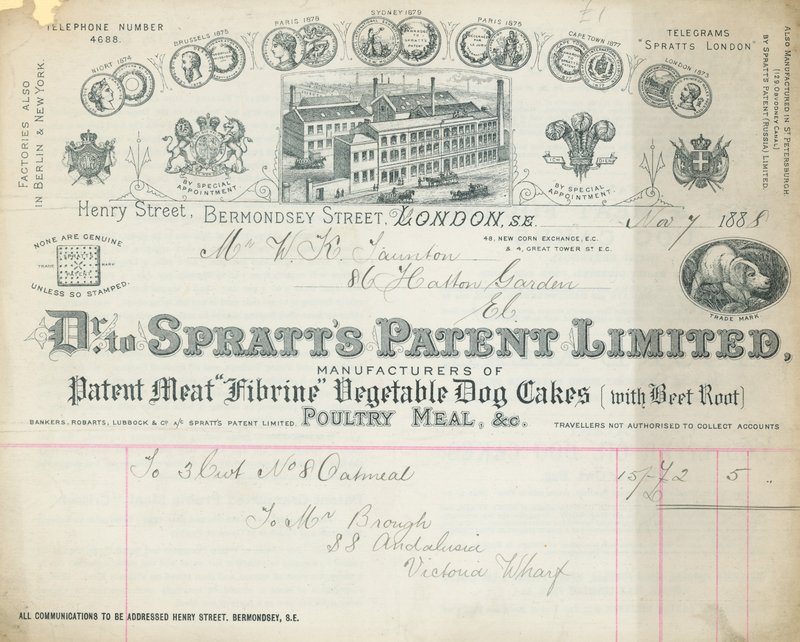 TELEPHONE NUMBER
4688.
NIORT 1874
BRUSSELS 1875
PARIS 1878
SYDNEY 1879
PARIS 1875
CAPETOWN 1877
LONDON 1873
£1
TELEGRAMS
"SPRATTS LONDON"
FACTORIES ALSO
IN BERLIN & NEW YORK.
ALSO MANUFACTURED IN ST PETERSBURGH.
(129. OBVODNEY CANAL)
BY SPRATT'S PATENT (RUSSIA) LIMITED.
BY SPECIAL
APPOINTMENT
BY SPECIAL
APPOINTMENT.
Henry Street, BERMONDSEY STREET, LONDON, S.E. Nov 7 1888
48, NEW CORN EXCHANGE, E.C.
& 4, GREAT TOWER ST E.C.
NONE ARE GENUINE
TRADE MARK
UNLESS SO STAMPED.
Mr W. K. Taunton
86 Hatton Garden
E.C.
TRADE MARK
Dr. to SPRATT'S PATENT LIMITED,
MANUFACTURERS OF
Patent Meat "Fibrine" Vegetable Dog Cakes (with Beet Root)
BANKERS, ROBARTS, LUBBOCK & Co A/C SPRATT'S PATENT LIMITED. POULTRY MEAL, &c. TRAVELLERS NOT AUTHORISED TO COLLECT ACCOUNTS
To 3 Cwt No 8 Oatmeal 15/- £ 2 5 "
To Mr Brough
SS Andalusia
Victoria Wharf
ALL COMMUNICATIONS TO BE ADDRESSED HENRY STREET, BERMONDSEY, S.E.